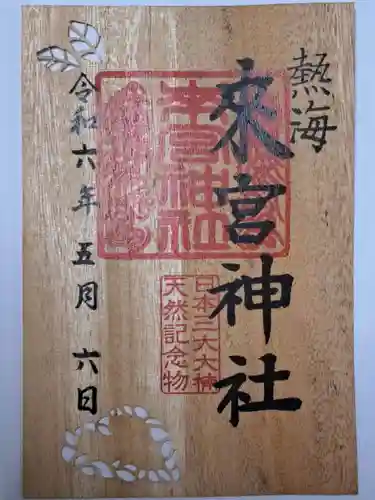 熱海
來宮神社
令和六年 五月 六日
來宮神社
日本三大大楠
天然記念物